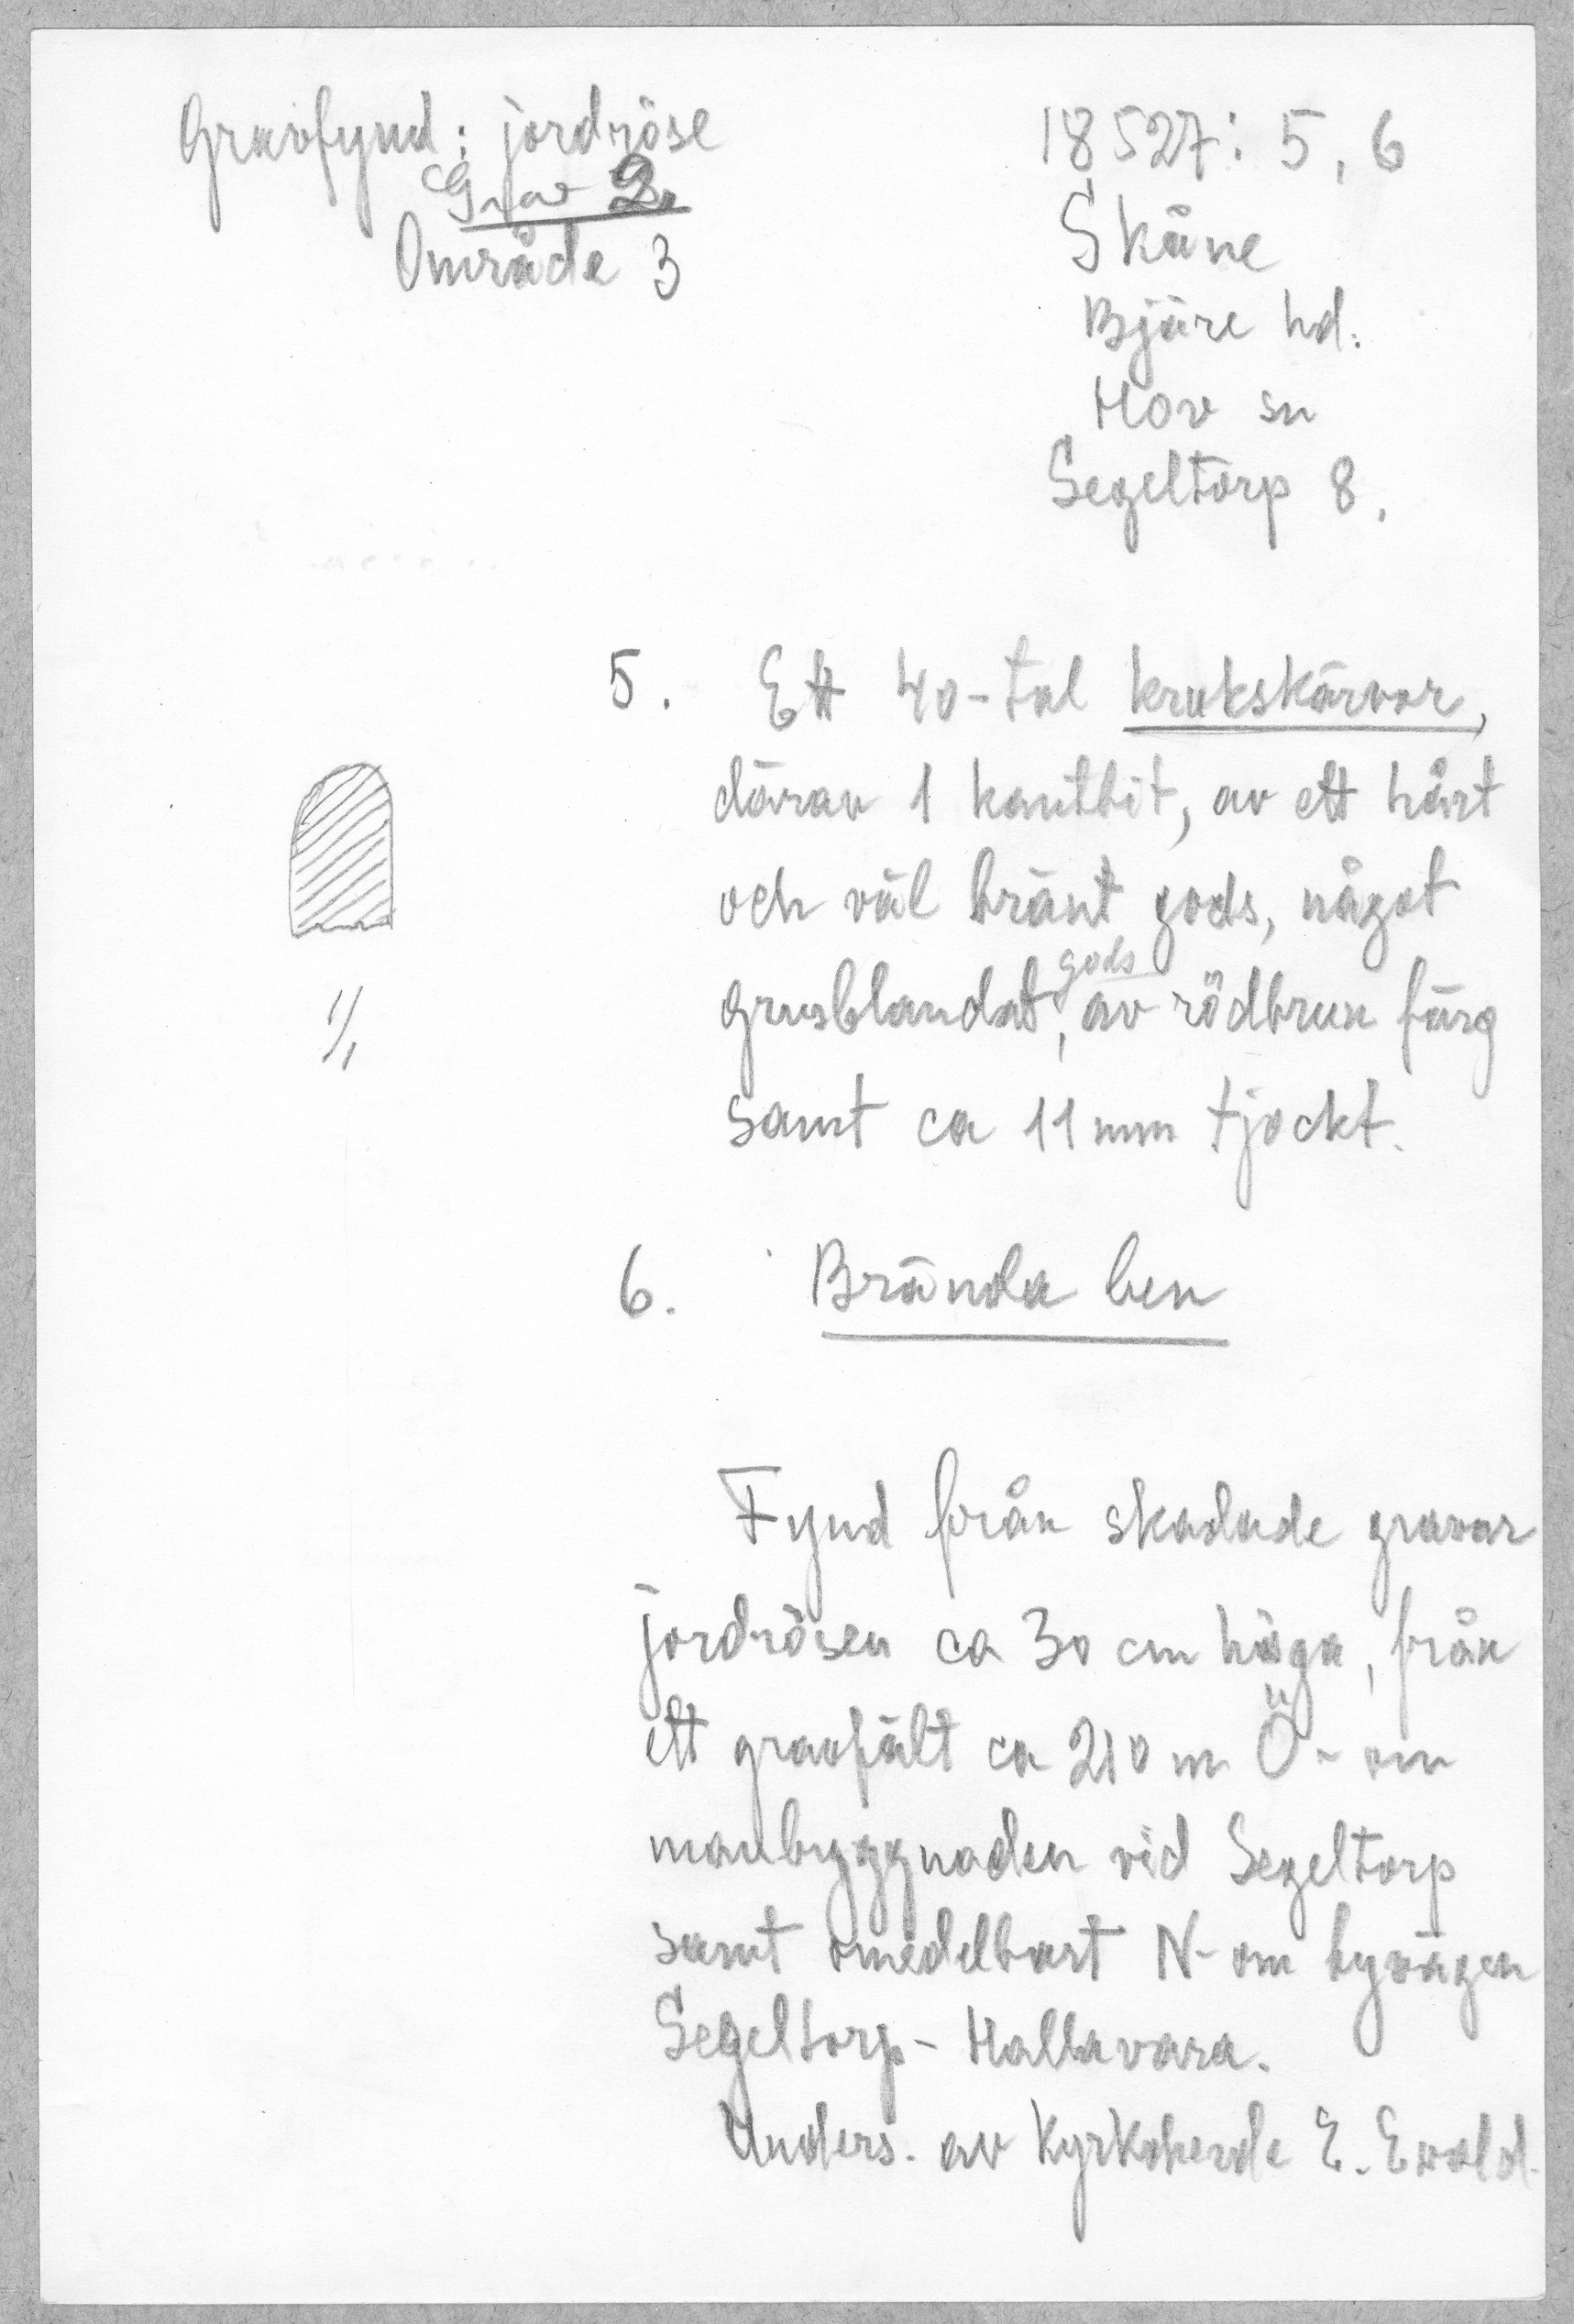 Gravfynd: jordröse
Grav 2.
Område 3
18527: 5, 6
Skåne
Bjäre hd.
Hov sn
Segeltorp 8.
5. Ett 40-tal krukskärvor,
därav 1 kantbit, av ett hårt
och väl bränt gods, något
gods
grusblandat, av rödbrun färg
samt ca 11 mm tjockt.
1/1
6. Brända ben
Fynd från skadade gravar
jordrösen ca 30 cm höga, från
ett gravfält ca 210 m Ö- om
manbyggnaden vid Segeltorp
samt omedelbart N- om byvägen
Segeltorp - Hallavara.
Unders. av Kyrkoherde E. Ewald.